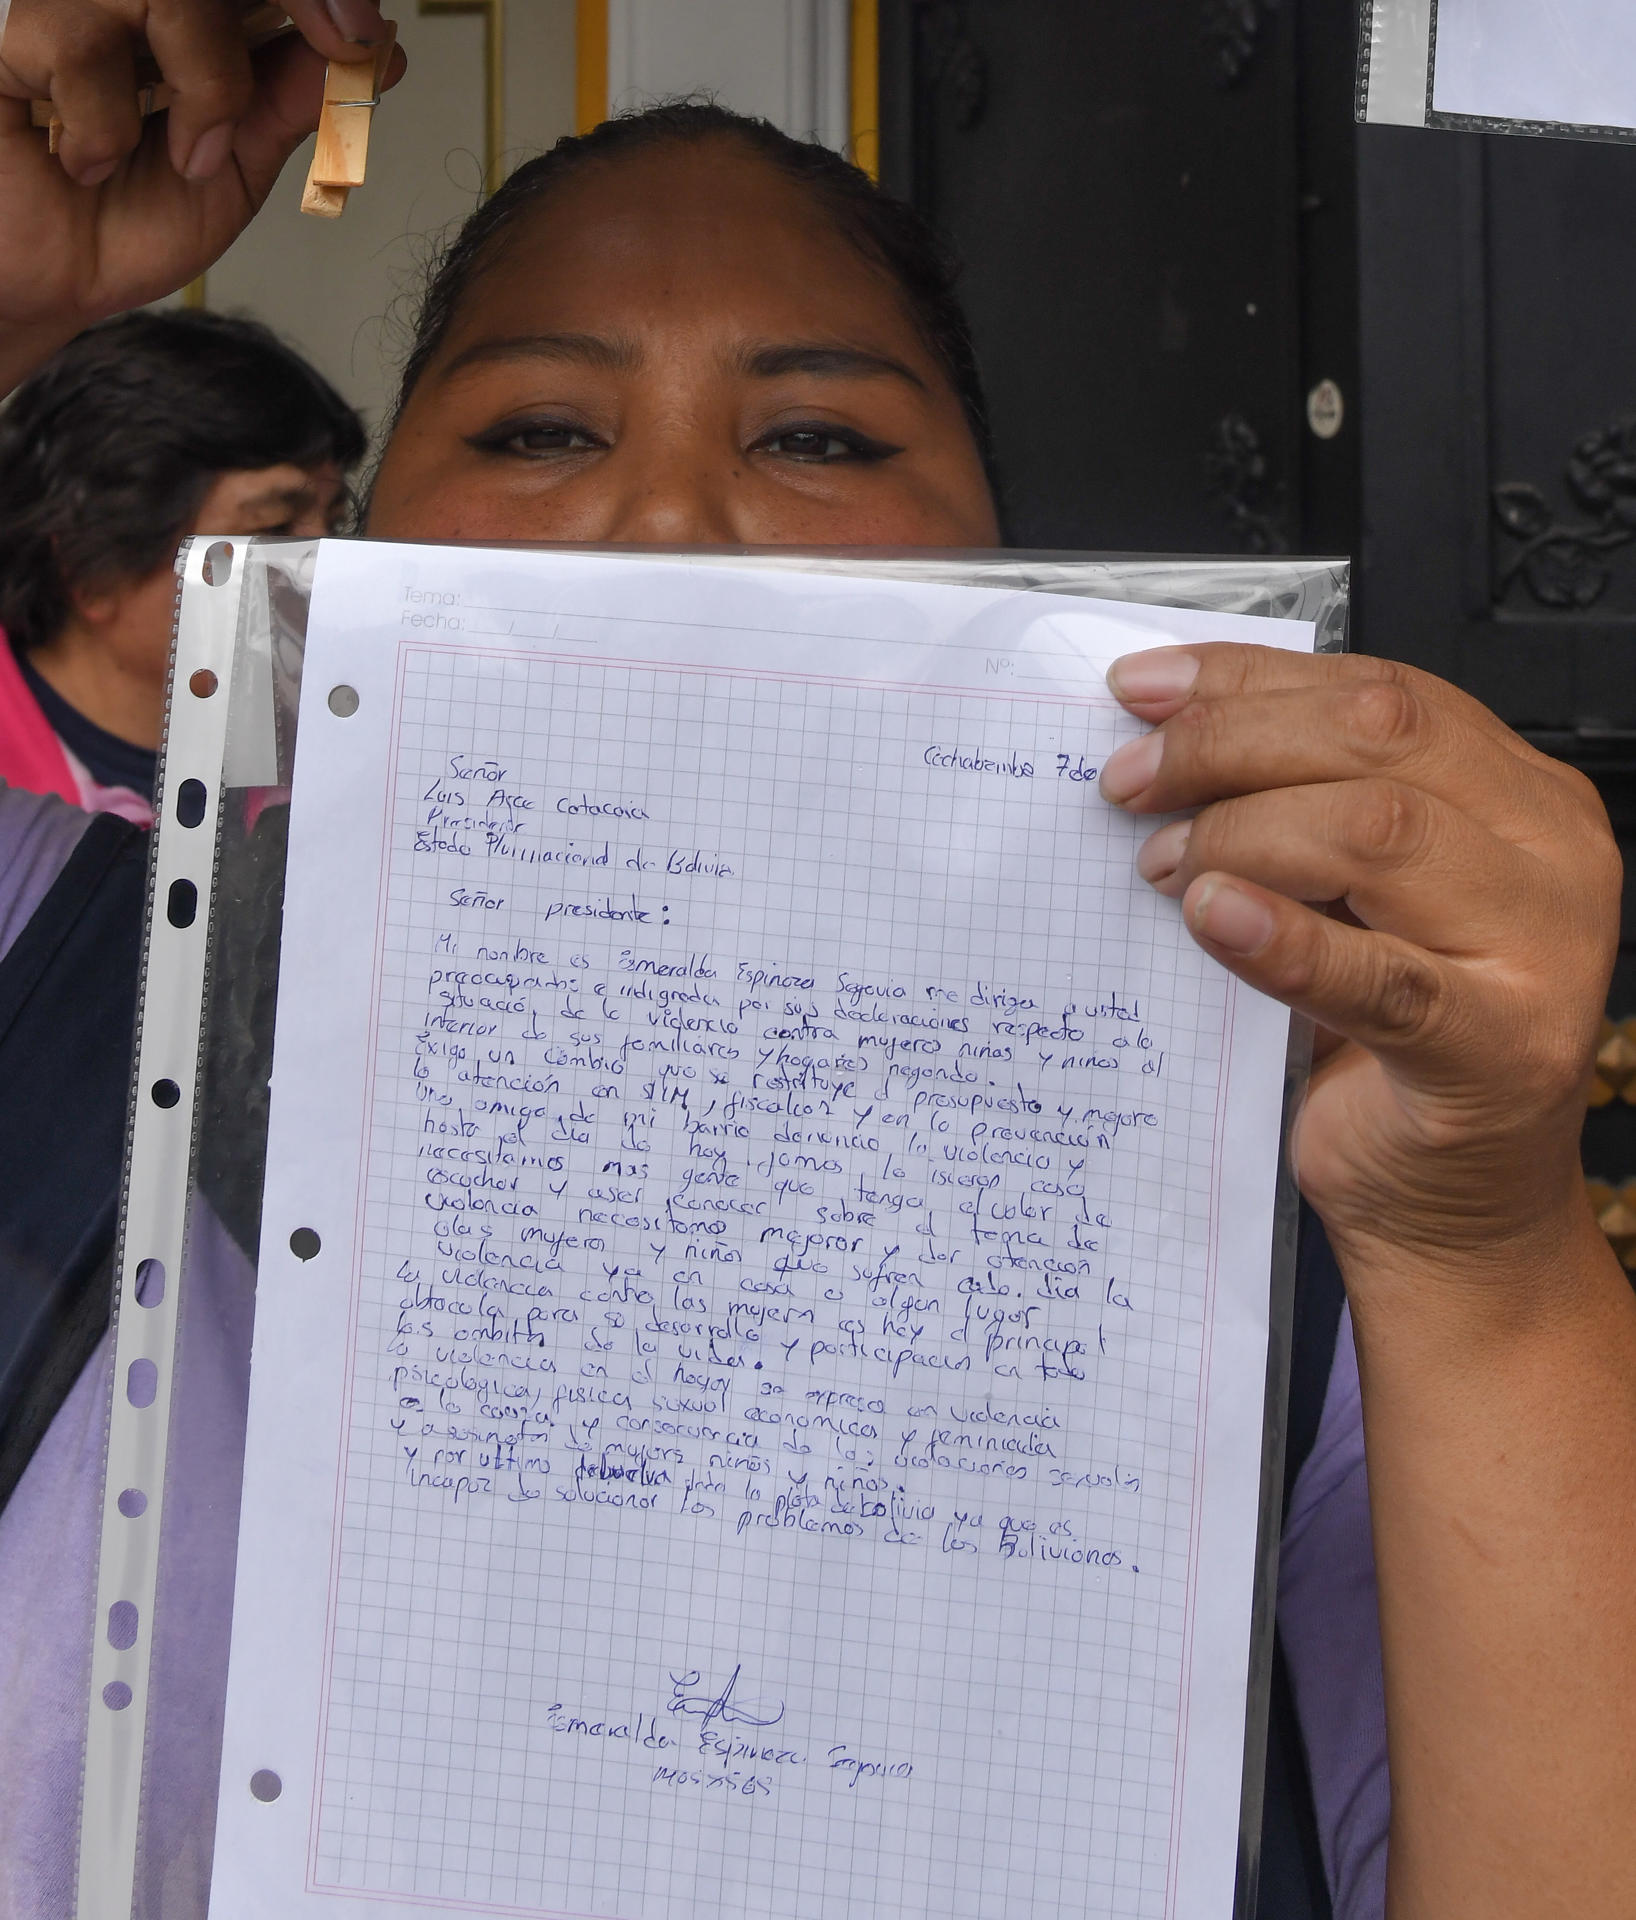 Tema:
Fecha: __/__/__
Nº:
Cochabamba 7 de
Señor
Luis Arce Catacora
Presidente
Estado Plurinacional de Bolivia
Señor presidente:
Mi nombre es Esmeralda Espinoza Segovia me dirigo a usted
preocupada e indignada por sus declaraciones respecto a la
situació de la violencia contra mujeres niñas y niños al
interior de sus familiares y hogares negando.
Exigo un cambio que se restituye el presupuesto y mejore
la atención en SLIM, fiscalia y en la prevención
una amiga de mi barrio denuncio la violencia y
hasta el dia de hoy jamas lo isieron caso
necesitamos mas gente que tenga el valor de
escuchar y aser conocer sobre el tema de
violencia necesitamos mejorar y dar atencion
a las mujeres y niños que sufren cada dia la
violencia ya en casa o algun lugar
La violencia contra las mujeres es hoy el principal
obtacula para so desarrollo y participacion en todo
los ambitos de la vida.
la violencia en el hogar se expresa en violencia
psicologica, fisica sexual economica y feminicidia
es la causa y consecuencia de las violaciones sexuales
y asesinatos de mujeres niñas y niños.
y por ultimo la plata de bolivia ya que es
incapaz de solucionar los problemas de los Bolivianos.
Esmeralda Espinoza Segovia